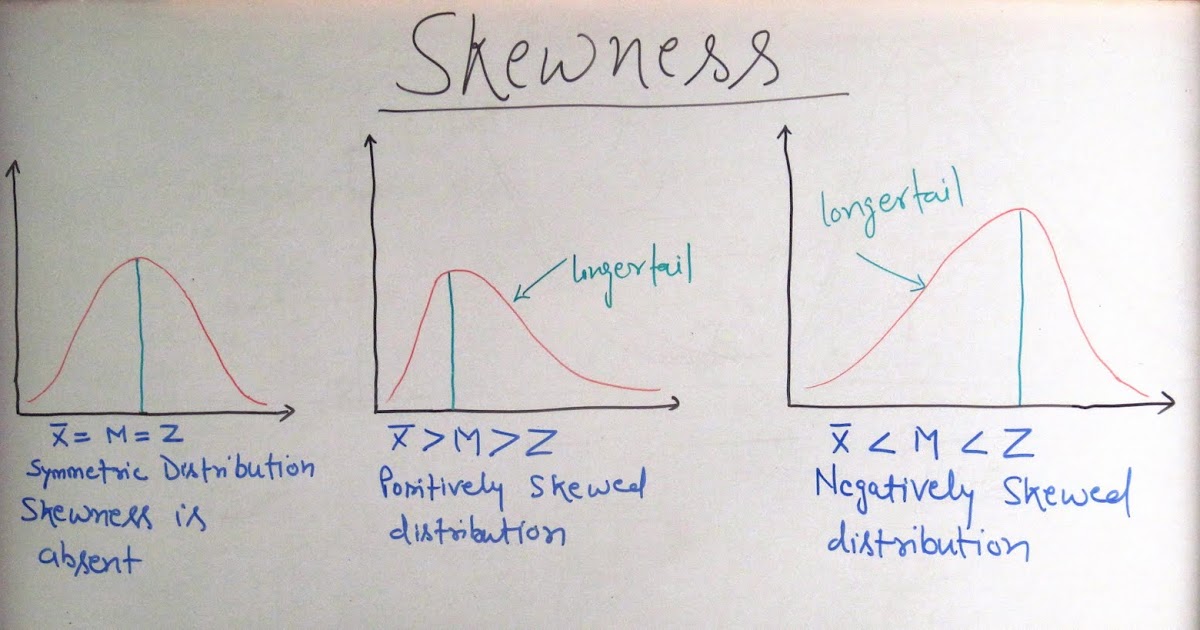 Skewness
longertail
longertail
X̄ = M = Z
Symmetric Distribution
Skewness is
absent
X̄ > M > Z
Positively Skewed
distribution
X̄ < M < Z
Negatively Skewed
distribution